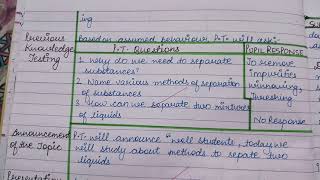 ing
Previous
Knowledge
Testing
based on assumed behaviour P.T. will ask:-
P.T. Questions
PUPIL RESPONSE
1. Why do we need to separate
substances?
To remove
impurities
2. Name various methods of separation
of substances
winnowing,
threshing
3. How can we separate two mixtures
of liquids
No Response
Announcement
of the Topic
P.T. will announce "well students, today we
will study about methods to sepate two
liquids
Presentation